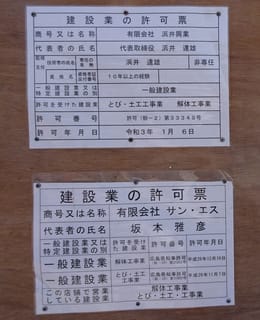 建設業の許可票
商号又は名称 有限会社 浜井興業
代表者の氏名 代表取締役 浜井 達雄
専任の有無 浜井 達雄 非専任
資格名 資格者証交付番号 10年以上の経験
一般建設業又は特定建設業の別 一般建設業
許可を受けた建設業 とび・土工工事業 解体工事業
許可番号
許可年月日 令和3年 1月 6日
建設業の許可票
商号又は名称 有限会社 サン・エス
代表者の氏名 坂本雅彦
一般建設業又は特定建設業の別 許可を受けた建設業 許可番号 許可年月日
一般建設業 解体工事業 広島県知事許可
一般建設業 とび・土工工事業 広島県知事許可
この店舗で営業している建設業 解体工事業
とび・土工・工事業